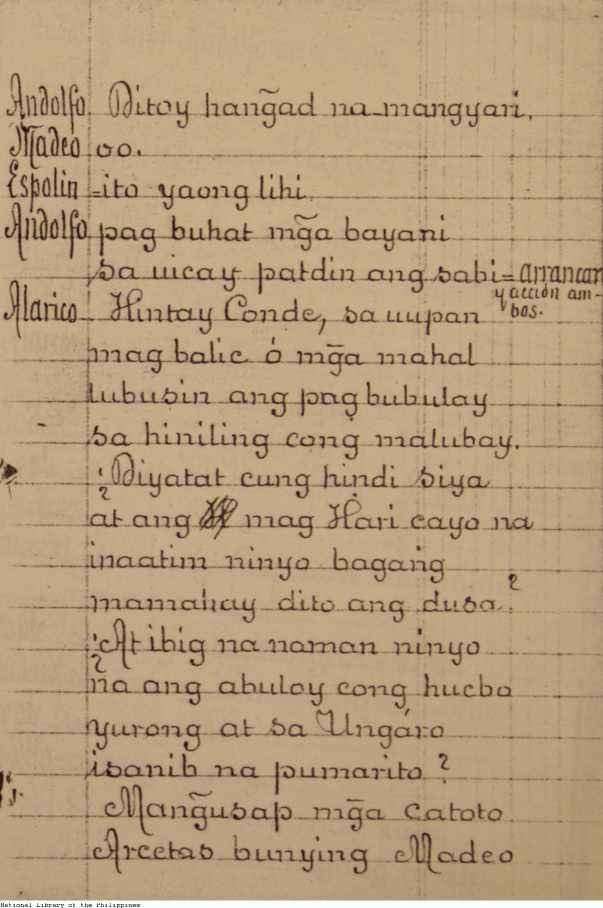 Andolfo. Ditoy hang̃ad na mangyari.
Madeo oo.
Espolin =ito yaong lihi
Andolfo pag buhat mg̃a bayani
sa uicay patdin ang sabi= arrancan
y acción am-
bos.
Alarico Hintay Conde, sa uupan
mag balic ó mg̃a mahal
lubusin ang pag bubulay
sa hiniling cong malubay.
¿Diyatat cung hindi siya
at ang mag Hari cayo na
inaatim ninyo bagang̃
mamahay dito ang dusa?
¿At ibig na naman ninyo
na ang abuloy cong hucbo
yurong at sa Ungáro
isanib na pumarito?
Mang̃usap mg̃a catoto
Arcetas bunying Madeo
National Library of the Philippines